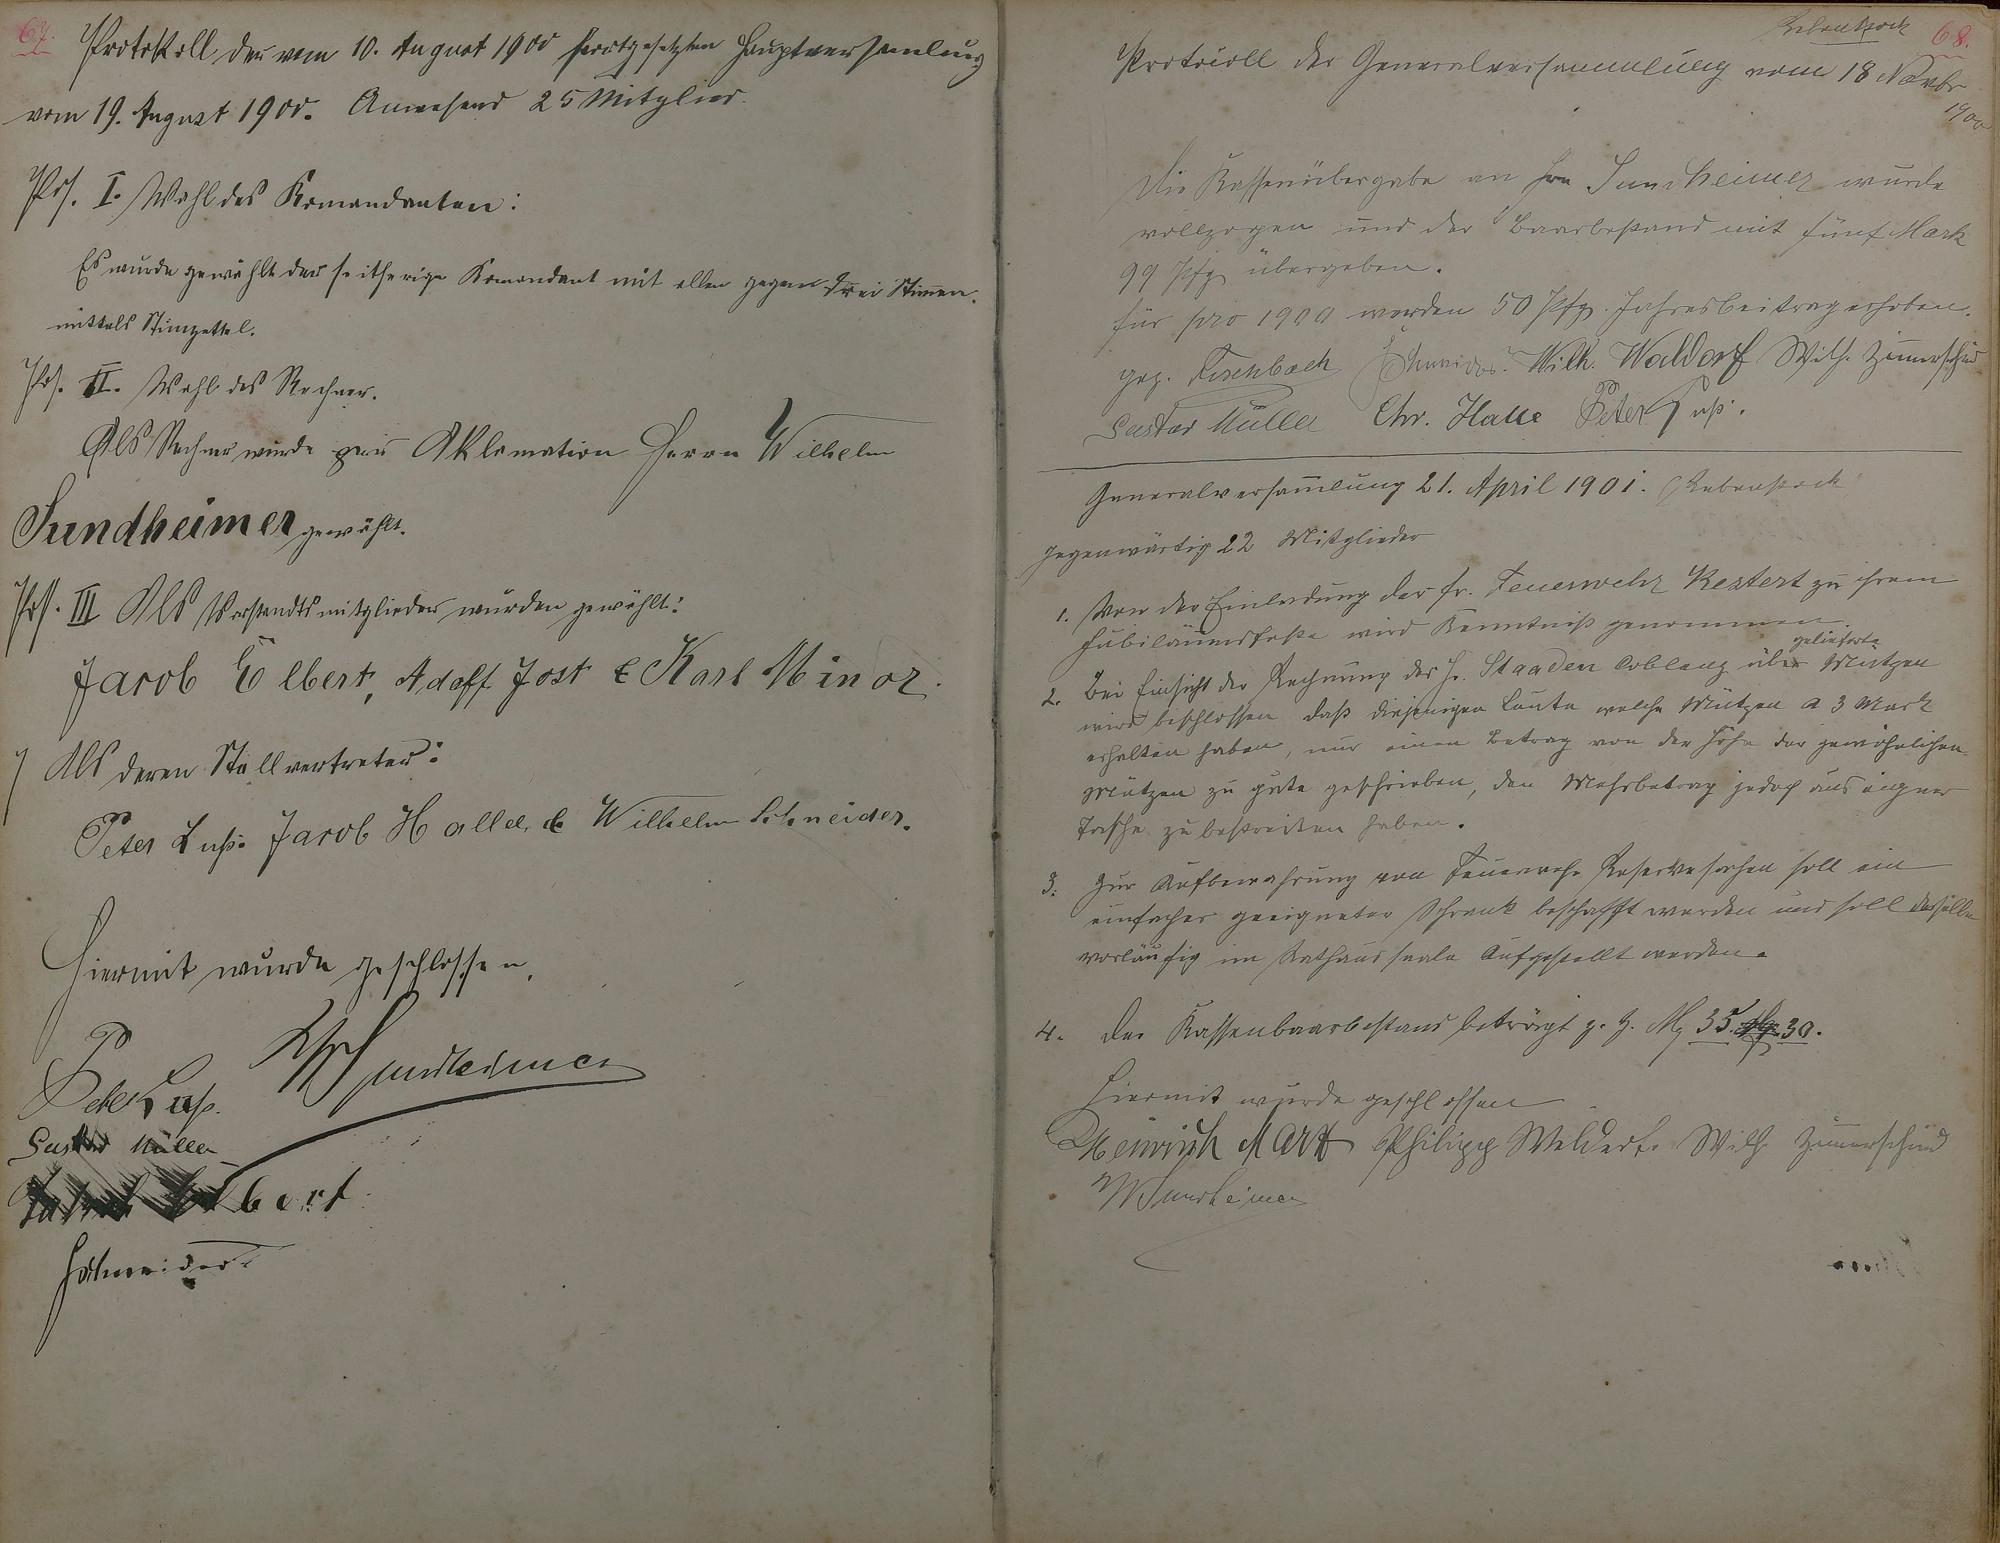 67.
Protokoll der vom 10. August 1900 fortgesetzten Hauptversamlung
vom 19. August 1900. Anwesend 25 Mitglied.
Pos. I. Wahl des Komandanten:
Es wurde gewählt der seitherige Komandant mit allen gegen drei Stimen.
mittels Stimzettel.
Pos. II. Wahl des Rechner.
Als Rechner wurde per Aklamation Herrn Wilhelm
Sundheimer gewählt.
Pos. III Als Vorstandtsmitglieder wurden gewählt:
Jacob Elbert, Adolf Jost & Karl Minor.
Als deren Stellvertreter:
Peter Luß. Jacob Halle. & Wilhelm Schneider.
Hiermit wurde geschlossen.
W Sundheimer
Peter Luß.
Gustav Müller
bert
Schneider.
Rebenstock 68.
Protocoll der Generalversammlung vom 18 Novbr
1900
Die Kassenübergabe an Hrn Sundheimer wurde
vollzogen und der Baarbestand mit fünf Mark
99 Pfg übergeben.
für pro 1900 werden 50 Pfg. Jahresbeitrag erhoben.
gez. Fischbach Schneider. Wilh. Waldorf Wilh. Zimerschied
Gustav Müller Chr. Halle Peter Luß.
Generalversamlung 21. April 1901. Rebenstock
gegenwärtig 22 Mitglieder
1. Von der Einladung der fr. Feuerwehr Kestert zu ihrem
Jubiläumsfeste wird Kenntniß genommen.
gelieferte
2. Bei Einsicht der Rechnung des H. Staaden Coblenz über Mützen
wird beschlossen daß diejenigen Leute welche Mützen a 3 Mark
erhalten haben, nur einen Betrag von der Höhe der gewöhnlichen
Mützen zu gute geschrieben, den Mehrbetrag jedoch aus eigner
Tasche zu bestreiten haben.
3. Zur Aufbewahrung von Feuerwehr Reservesachen soll ein
einfacher geeigneter Schrank beschafft werden und soll derselbe
vorläufig im Rathaussaale Aufgestellt werden.
4. Der Kassenbaarbestand beträgt z. Z. M. 35. 30.
Hiermit wurde geschlossen
Heinrich Marx Philipp Weldert. Wilh Zimerschied
W Sundheimer